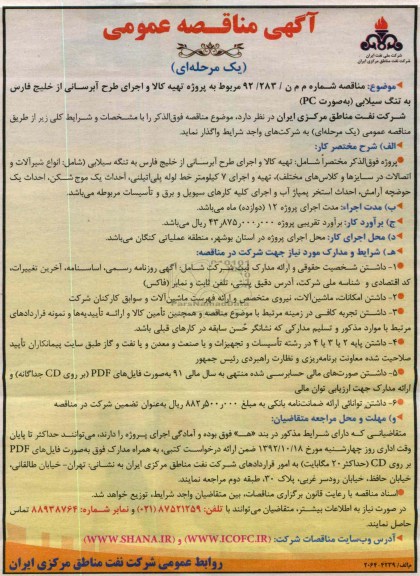 شرکت ملی نفت ایران
شرکت نفت مناطق مرکزی ایران
آگهی مناقصه عمومی
(یک مرحله‌ای)
موضوع: مناقصه شماره م م ن / ۲۸۳/ ۹۲ مربوط به پروژه تهیه کالا و اجرای طرح آبرسانی از خلیج فارس
به تنگ سیلابی (به‌صورت PC)
شرکت نفت مناطق مرکزی ایران در نظر دارد، موضوع مناقصه فوق‌الذکر را با مشخصات و شرایط کلی زیر از طریق
مناقصه عمومی (یک مرحله‌ای) به شرکت‌های واجد شرایط واگذار نماید.
الف) شرح مختصر کار:
پروژه فوق‌الذکر مختصراً شامل: تهیه کالا و اجرای طرح آبرسانی از خلیج فارس به تنگه سیلابی (شامل: انواع شیرآلات و
اتصالات در سایزها و کلاس‌های مختلف)، تهیه و اجرای ۷ کیلومتر خط لوله پلی‌اتیلنی، احداث یک موج‌شکن، احداث یک
حوضچه آرامش، احداث استخر پمپاژ آب و اجرای کلیه کارهای سیویل و برق و تأسیسات مربوطه می‌باشد.
ب) مدت اجراء: مدت اجرای پروژه ۱۲ (دوازده) ماه می‌باشد.
ج) برآورد کار: برآورد تقریبی پروژه ۴۳٫۸۷۵٫۰۰۰٫۰۰۰ ریال می‌باشد.
د) محل اجرای کار: محل اجرای پروژه در استان بوشهر، منطقه عملیاتی کنگان می‌باشد.
هـ) شرایط و مدارک مورد نیاز جهت شرکت در مناقصه:
۱- داشتن شخصیت حقوقی و ارائه مدارک ثبت شرکت شامل: آگهی روزنامه رسمی، اساسنامه، آخرین تغییرات،
کد اقتصادی و شناسه ملی شرکت، آدرس دقیق پستی، تلفن ثابت و نمابر (فاکس)
۲- داشتن امکانات، ماشین‌آلات، نیروی متخصص و ارائه فهرست ماشین‌آلات و سوابق کارکنان شرکت
۳- داشتن تجربه کافی در زمینه مرتبط با موضوع مناقصه و همچنین تأمین کالا و ارائه تأییدیه‌ها و نمونه قراردادهای
مرتبط با موارد مذکور و تسلیم مدارکی که نشانگر حُسن سابقه در کارهای قبلی باشد.
۴- داشتن پایه ۲ یا ۳ یا ۴ در رشته تأسیسات و تجهیزات و یا صنعت و معدن و یا نفت و گاز طبق سایت پیمانکاران تأیید
صلاحیت شده معاونت برنامه‌ریزی و نظارت راهبردی رئیس جمهور
۵- داشتن صورت‌های مالی حسابرسی شده منتهی به سال مالی ۹۱ به‌صورت فایل‌های PDF (بر روی CD جداگانه) و
ارائه مدارک جهت ارزیابی توان مالی
۶- داشتن توانائی ارائه ضمانت‌نامه بانکی به مبلغ ۸۸۲٫۵۰۰٫۰۰۰ ریال به‌عنوان تضمین شرکت در مناقصه
و) مهلت و محل مراجعه متقاضیان:
متقاضیانی که دارای شرایط مذکور در بند «هـ» فوق بوده و آمادگی اجرای پروژه را دارند، می‌توانند حداکثر تا پایان
وقت اداری روز چهارشنبه مورخ ۱۳۹۲/۱۰/۱۸ ضمن ارائه درخواست کتبی، به همراه مدارک فوق به‌صورت فایل‌های PDF
بر روی CD (حداکثر ۲۰ مگابایت) به امور قراردادهای شرکت نفت مناطق مرکزی ایران به نشانی: تهران- خیابان طالقانی،
خیابان حافظ، خیابان رودسر غربی، پلاک ۳۰، طبقه دوم مراجعه نمایند.
اسناد مناقصه با رعایت قانون برگزاری مناقصات، بین متقاضیان واجد شرایط، توزیع خواهد شد.
در صورت نیاز به اطلاعات بیشتر، متقاضیان می‌توانند با تلفن: ۸۷۵۲۱۲۵۹ (۰۲۱) و نمابر شماره: ۸۸۹۳۸۷۶۴ تماس
حاصل نمایند.
آدرس وب‌سایت مناقصات شرکت: (WWW.ICOFC.IR) و (WWW.SHANA.IR)
روابط عمومی شرکت نفت مناطق مرکزی ایران